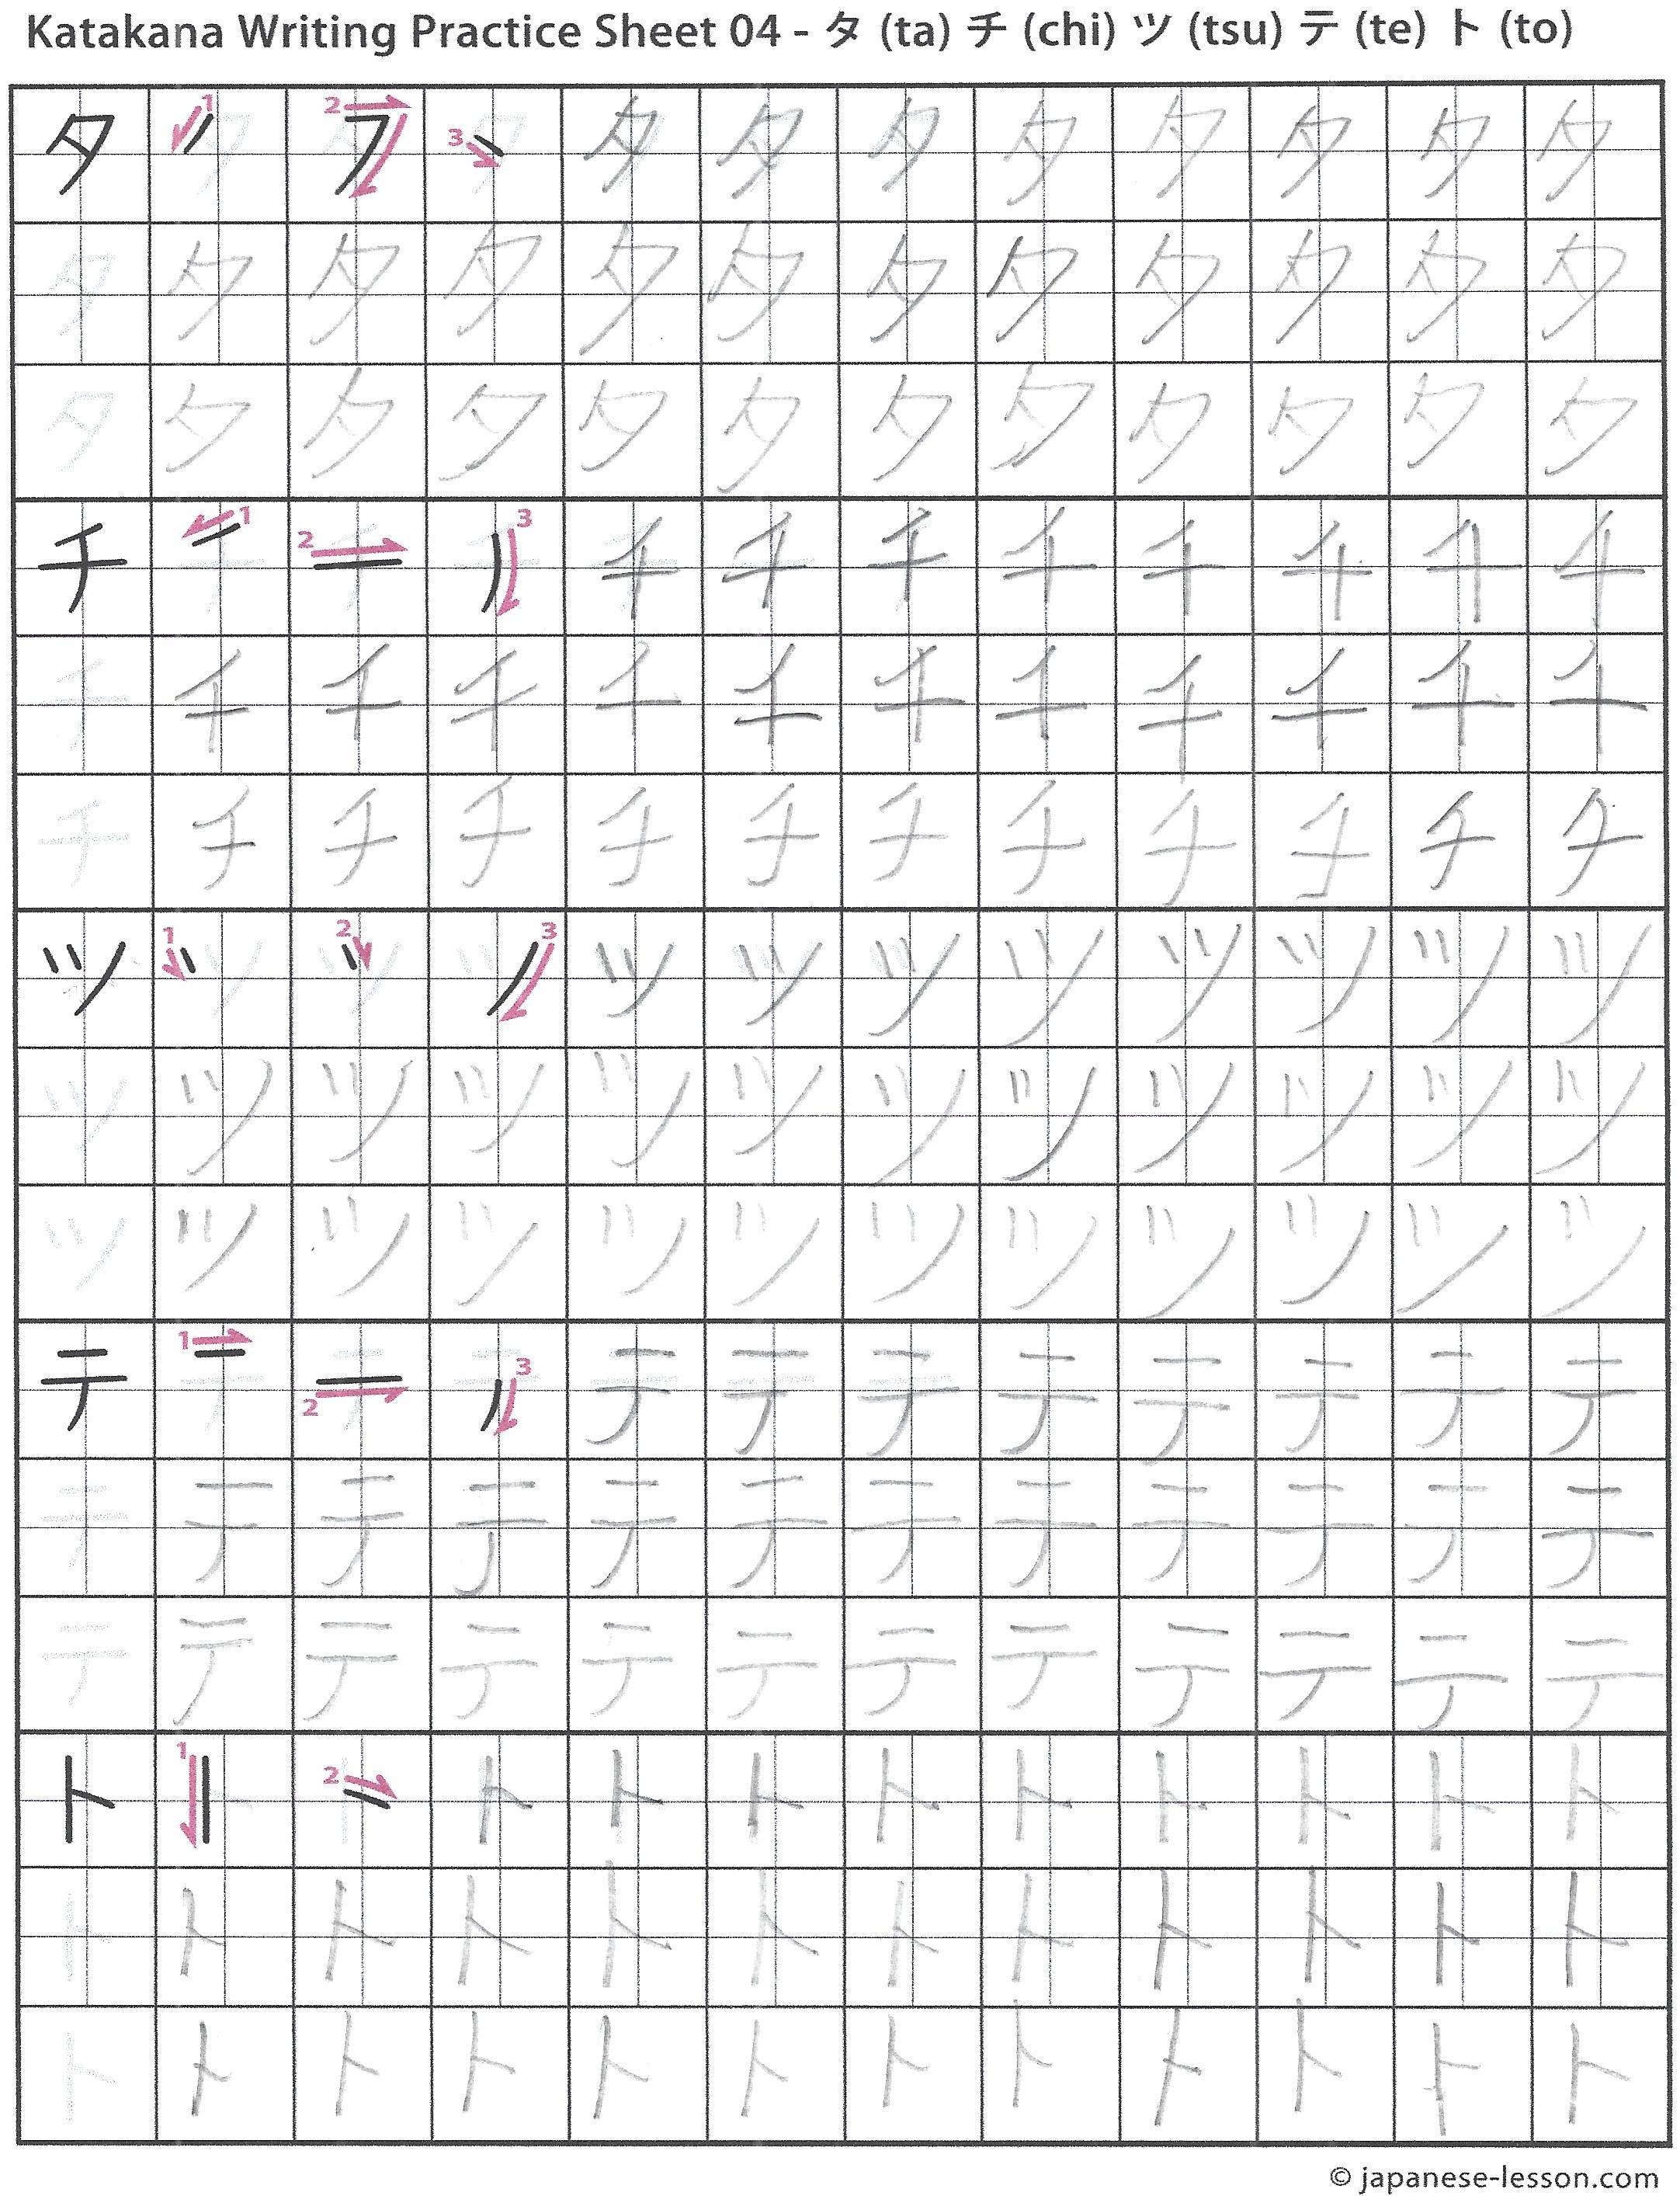 Katakana Writing Practice Sheet 04 - タ (ta) チ (chi) ツ (tsu) テ (te) ト (to)
タ 1 2 3 タ タ タ タ タ タ タ タ
タ タ タ タ タ タ タ タ タ タ タ タ
タ タ タ タ タ タ タ タ タ タ タ タ
チ 1 2 3 チ チ チ チ チ チ チ チ
チ チ チ チ チ チ チ チ チ チ チ チ
チ チ チ チ チ チ チ チ チ チ チ チ
ツ 1 2 3 ツ ツ ツ ツ ツ ツ ツ ツ
ツ ツ ツ ツ ツ ツ ツ ツ ツ ツ ツ ツ
ツ ツ ツ ツ ツ ツ ツ ツ ツ ツ ツ ツ
テ 1 2 3 テ テ テ テ テ テ テ テ
テ テ テ テ テ テ テ テ テ テ テ テ
テ テ テ テ テ テ テ テ テ テ テ テ
ト 1 2 ト ト ト ト ト ト ト ト ト
ト ト ト ト ト ト ト ト ト ト ト ト
ト ト ト ト ト ト ト ト ト ト ト ト
© japanese-lesson.com